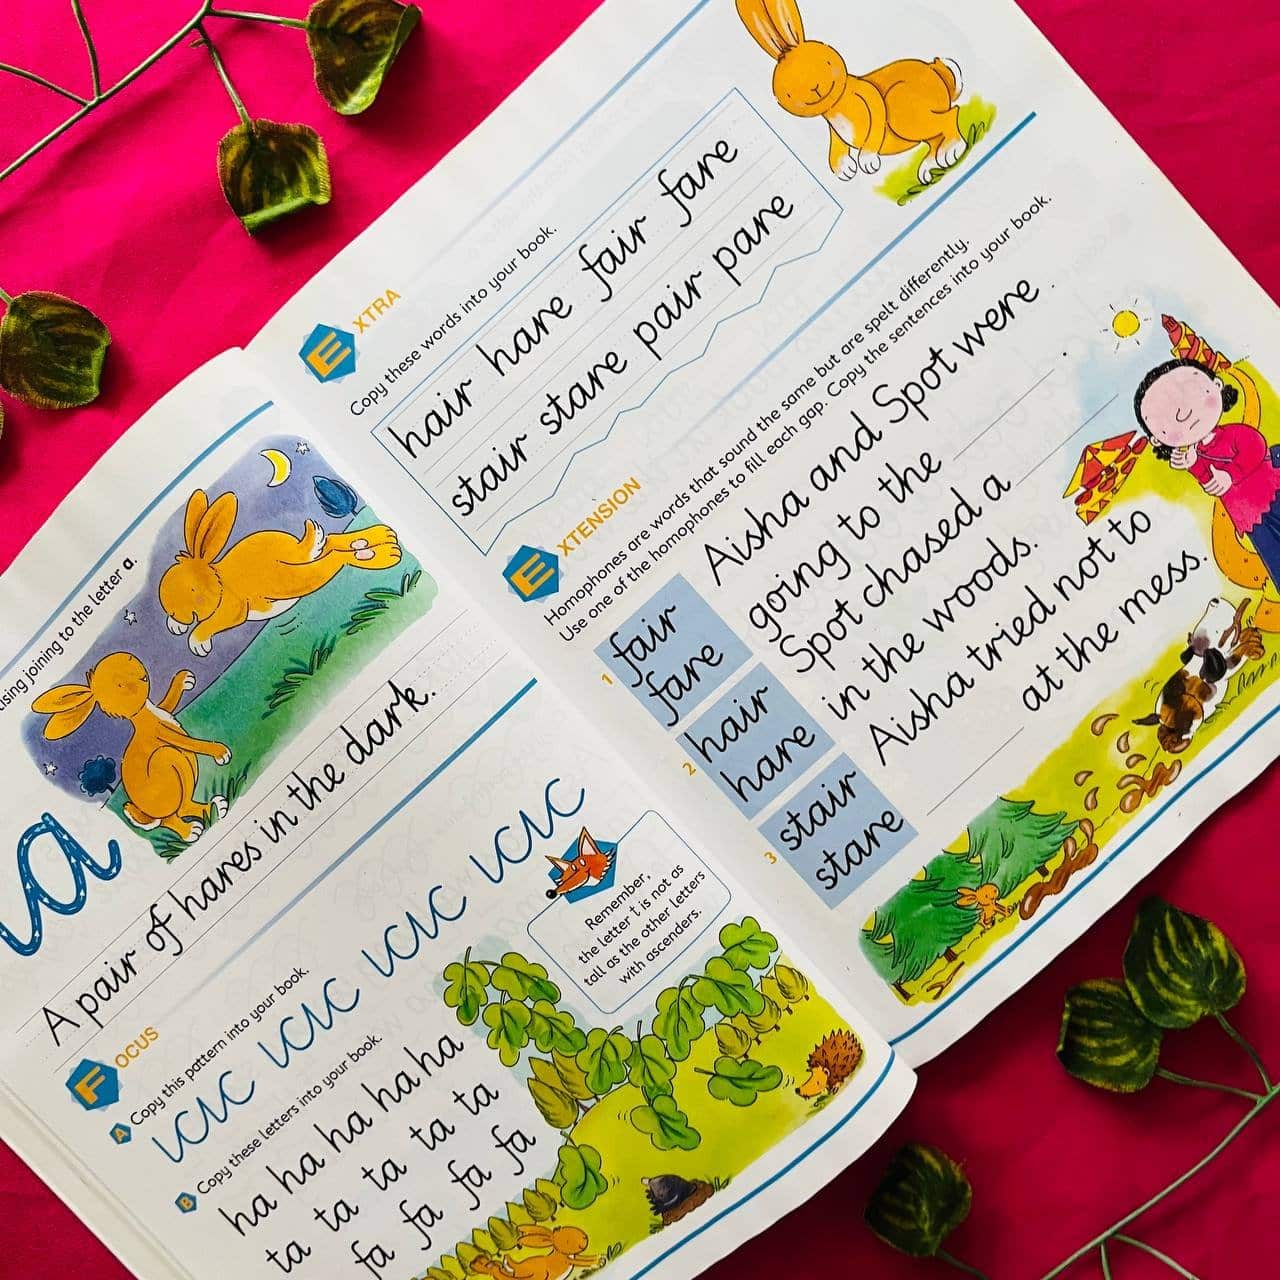 ising joining to the letter a.
a
A pair of hares in the dark.
FOCUS
A Copy this pattern into your book.
B Copy these letters into your book.
ha ha ha ha ha
ta ta ta ta
fa fa fa fa
Remember,
the letter t is not as
tall as the other letters
with ascenders.
EXTRA
Copy these words into your book.
hair hare fair fare
stair stare pair pare
EXTENSION
Homophones are words that sound the same but are spelt differently.
Use one of the homophones to fill each gap. Copy the sentences into your book.
1 fair
fare
Aisha and Spot were
going to the .
2 hair
hare
Spot chased a
in the woods.
3 stair
stare
Aisha tried not to
at the mess.